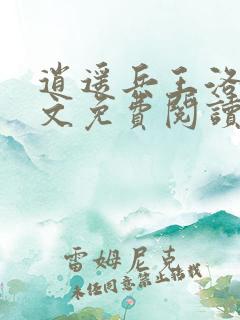 逍遥兵王洛
文免費閱讀
雷姆尼克
未经同意禁止转载